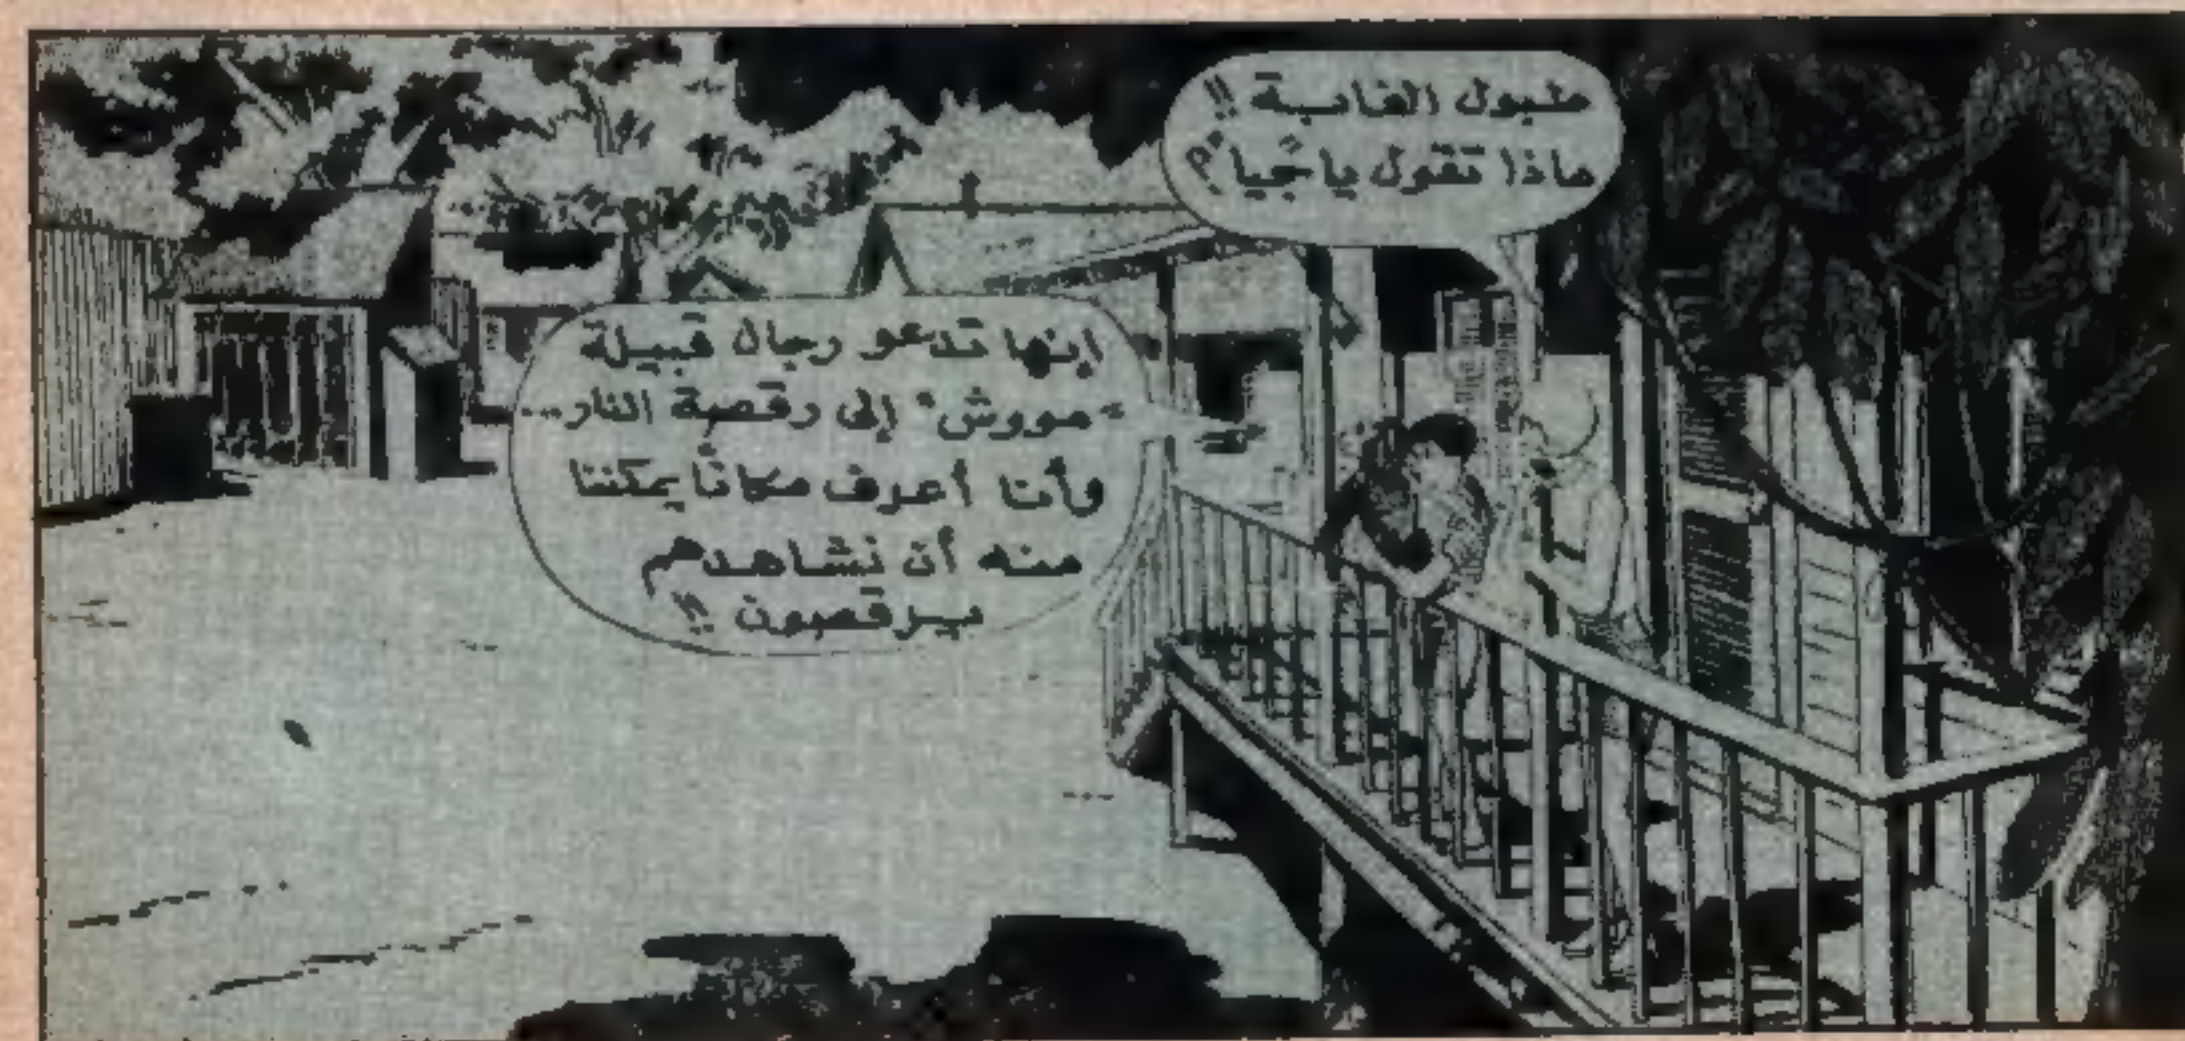 طبول الغابة !!
ماذا تقول يا "جيا" ؟
إنها تدعو رجال قبيلة
"مووش" إلى رقصة النار...
وأنا أعرف مكانًا يمكننا
منه أن نشاهدهم
يرقصون !!